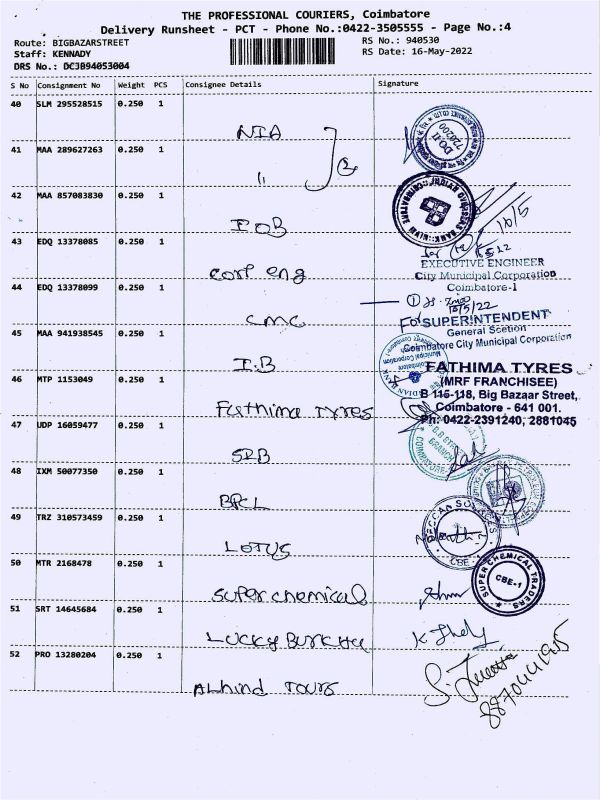 THE PROFESSIONAL COURIERS, Coimbatore
Delivery Runsheet - PCT - Phone No.:0422-3505555 - Page No.:4
Route: BIGBAZARSTREET
RS No.: 940530
Staff: KENNADY
RS Date: 16-May-2022
DRS No.: DCJB94053004
S No Consignment No Weight PCS Consignee Details Signature
40 SLM 295528515 0.250 1
NIA
DO-II
720200
41 MAA 289627263 0.250 1
"
42 MAA 857083830 0.250 1
IOB
INDIAN OVERSEAS BANK
16/5
43 EDQ 13378085 0.250 1
Corp eng
EXECUTIVE ENGINEER
City Municipal Corporation
Coimbatore-1
44 EDQ 13378099 0.250 1
CMC
16/5/22
For SUPERINTENDENT
General Scetion
Coimbatore City Municipal Corporation
45 MAA 941938545 0.250 1
I.B
46 MTP 1153049 0.250 1
Fathima Tyres
FATHIMA TYRES
(MRF FRANCHISEE)
B 116-118, Big Bazaar Street,
Coimbatore - 641 001.
Ph: 0422-2391240, 2881045
47 UDP 16059477 0.250 1
SIB
BRANCH
COIMBATORE
48 IXM 50077350 0.250 1
BPCL
49 TRZ 310573459 0.250 1
LOTUS
CBE
50 MTR 2168478 0.250 1
Super chemical
SUPER CHEMICAL TRADERS
CBE-1
51 SRT 14645684 0.250 1
Lucky Burkha
52 PRO 13280204 0.250 1
ALhind TOURS
8870441905